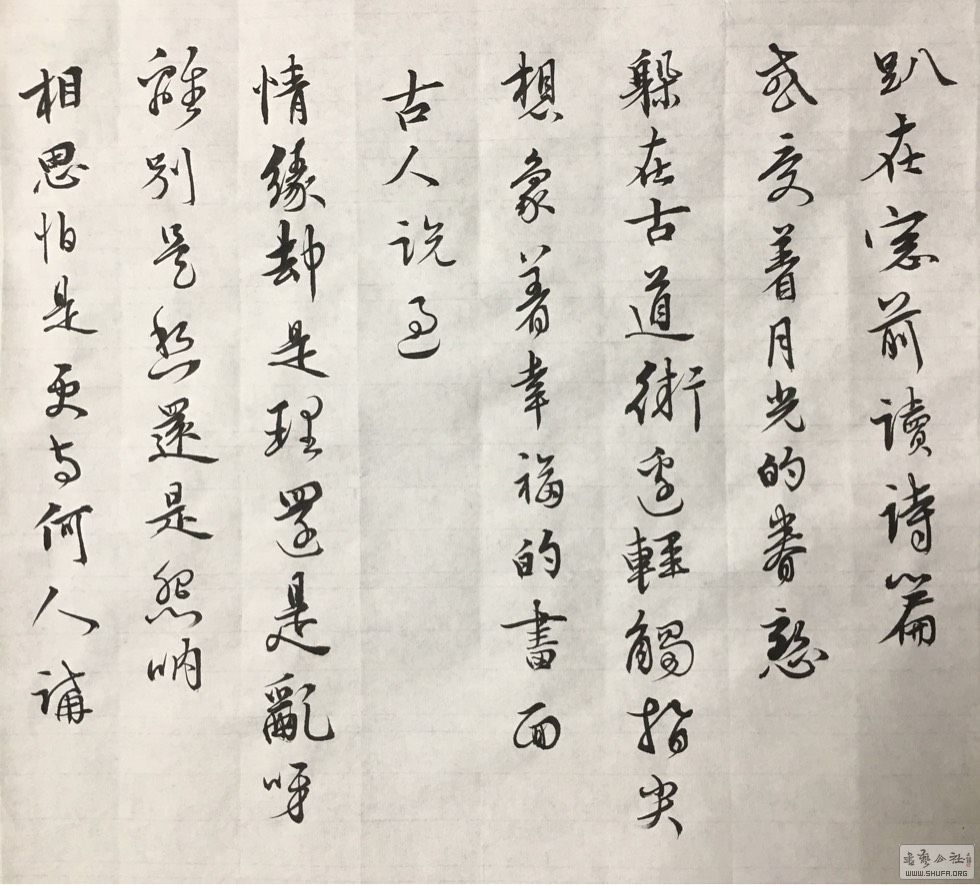 趴在窓前讀詩篇
感受着月光的眷戀
躲在古道街邊輕觸指尖
想象着幸福的畫面
古人説過
情緣却是理還是亂呀
離别是愁還是怨呐
相思怕是更与何人講
書藝公社
WWW.SHUFA.ORG